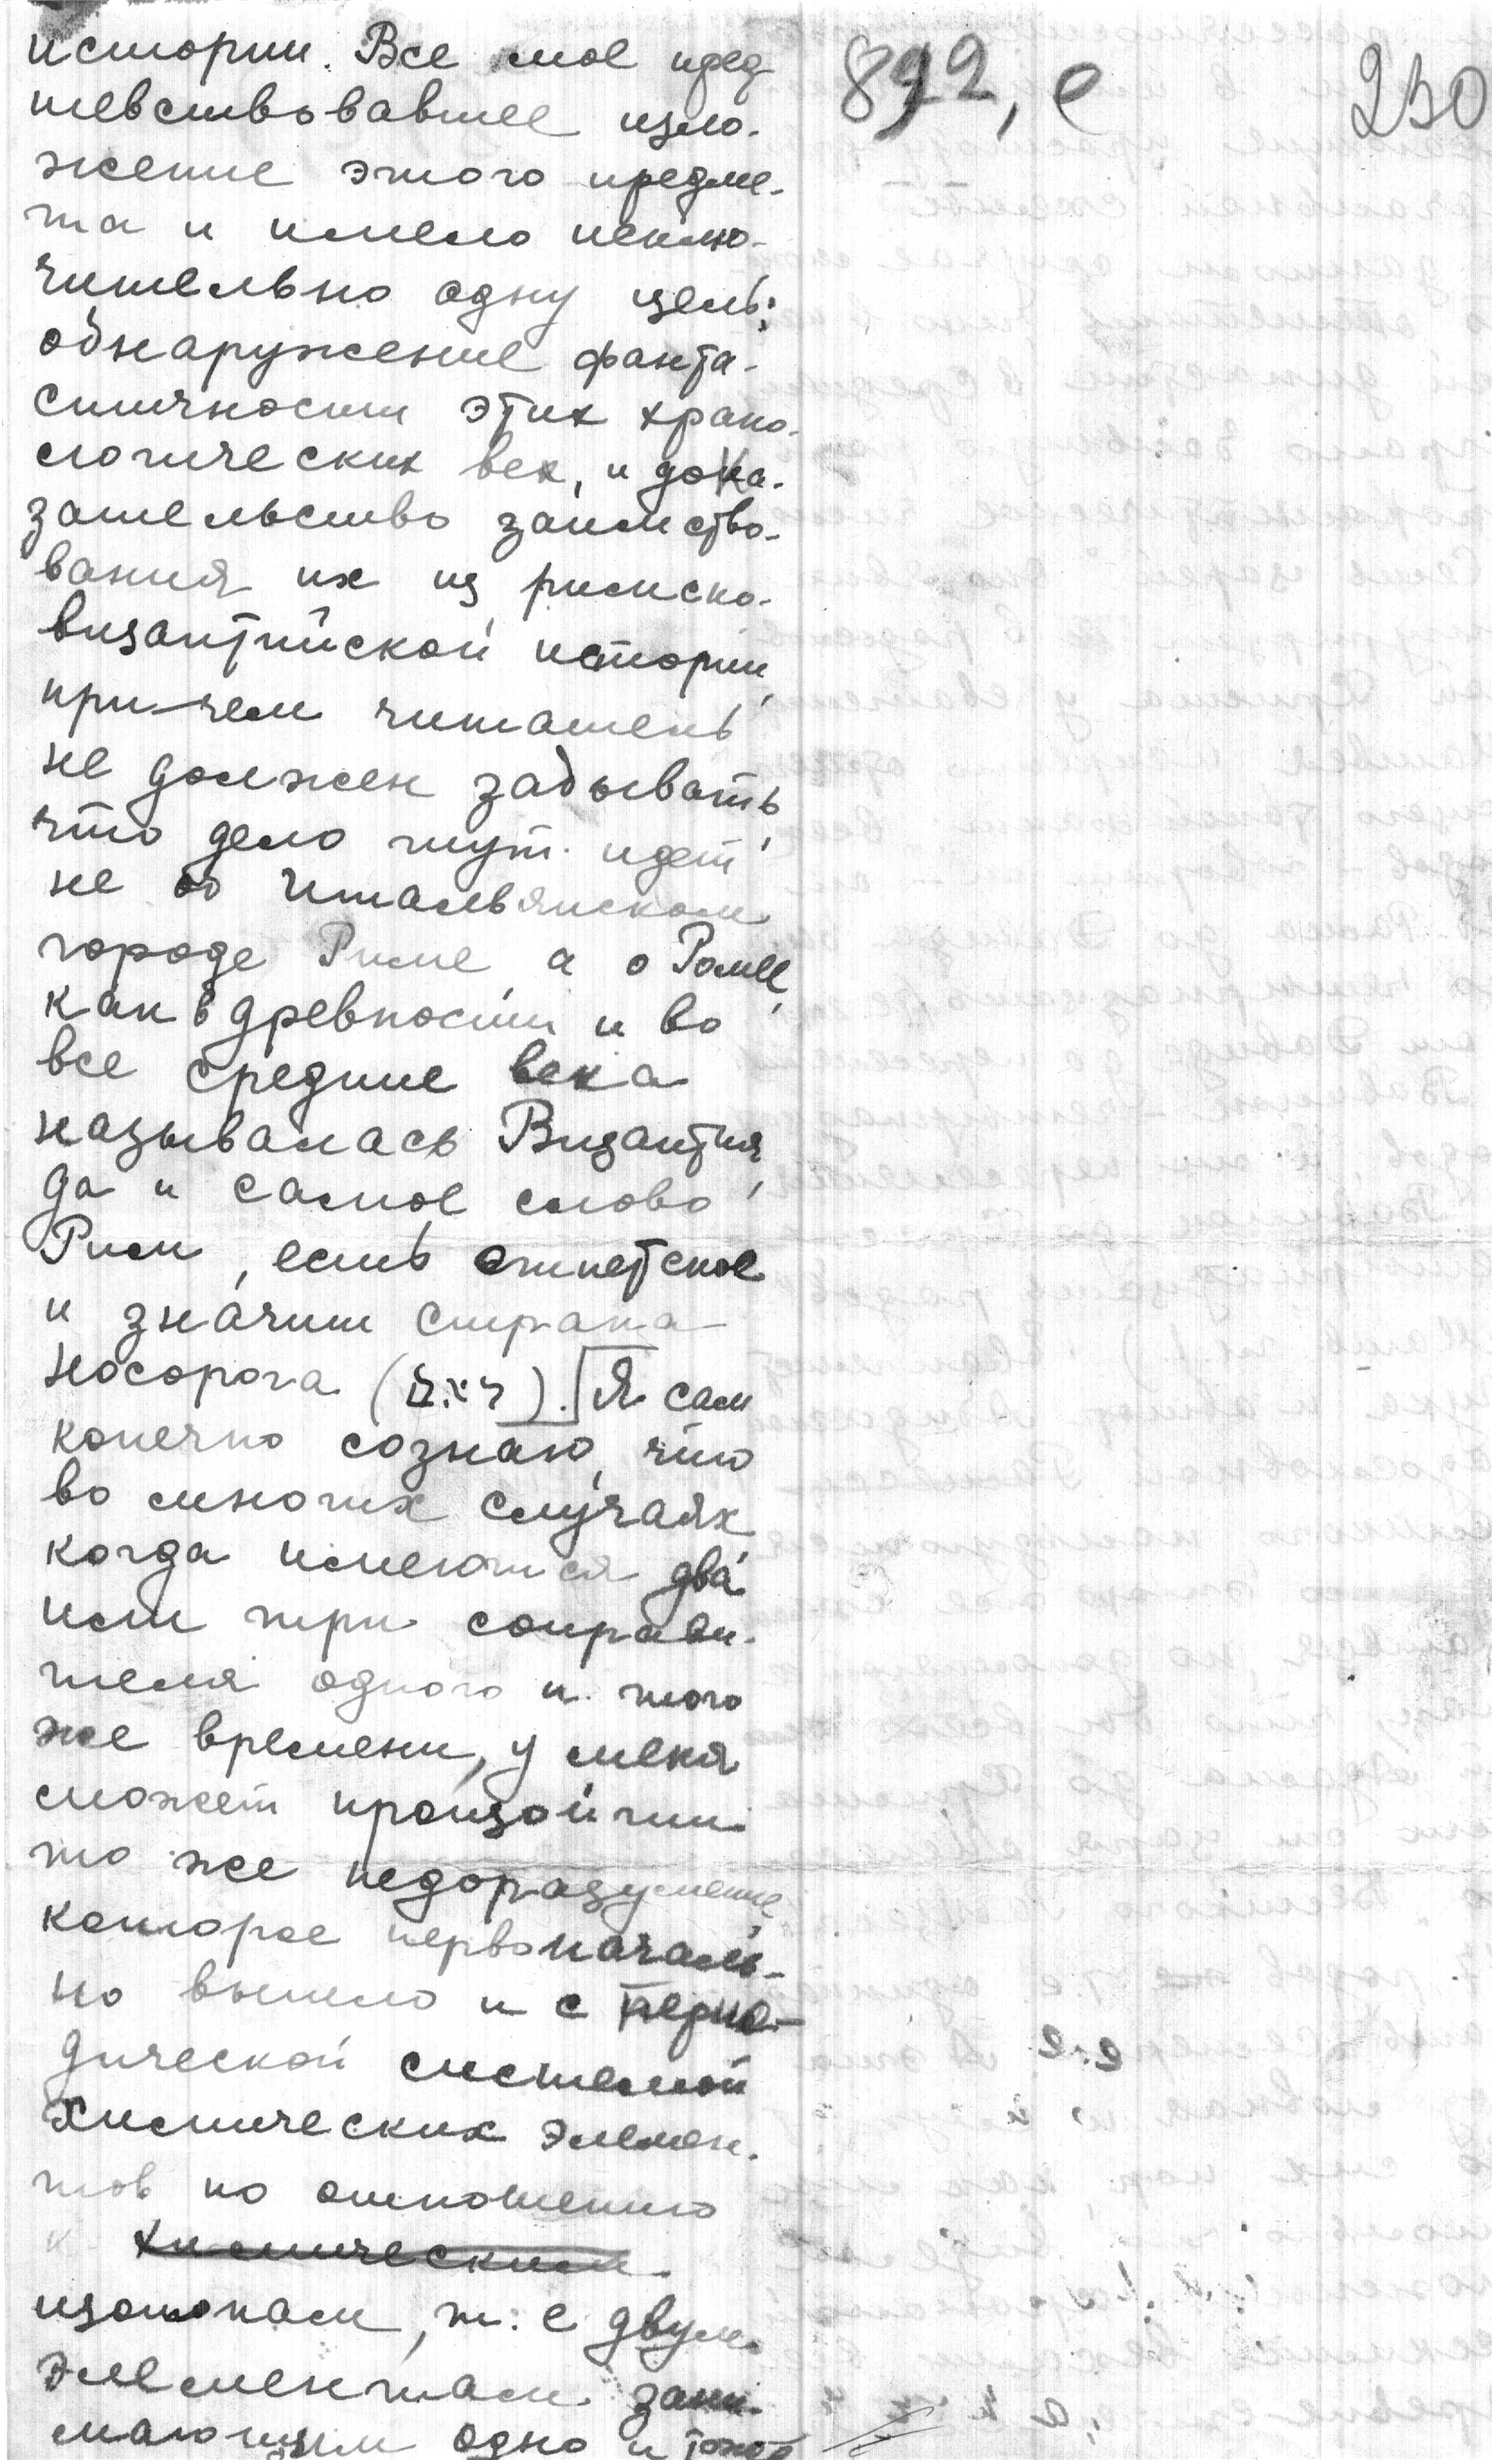 892, е 230
истории. Все мое пред-
шевствовавшее изло-
жение этого предме-
та и имело исклю-
чительно одну цель:
обнаружение фанта-
стичности этих хроно-
логических век, и дока-
зательство заимство-
вания их из римско-
византийской истории,
при-чем читатель
не должен забывать,
что дело тут идет
не об Итальянском
городе Риме, а о Ромее,
как в древности и во
все средние века
называлась Византия,
да и самое слово
Рим, есть египетское
и значит страна
носорога ( ). Я сам
конечно сознаю, что
во многих случаях
когда имеются два
или три соправи-
теля одного и того
же времени, у меня
может произойти
то же недоразумение,
которое первоначаль-
но вышло и с перио-
дической системой
Химических элемен-
тов по отношению
к химическим
изотопам, т. е двум
элементам зани-
мающим одно и тоже